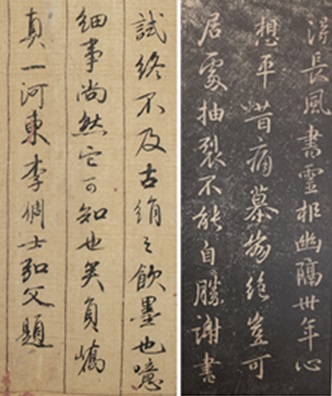 淳長風書靈柩幽隔卅年心
想平昔痛慕崩絕豈可
居處抽裂不能自勝謝書
試終不及古絹之飲墨也噫
細事尚然它可知也矣員嶠
真一河東李倜士弘父題